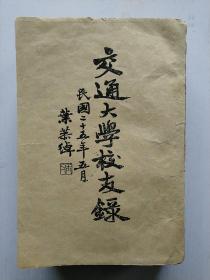 交通大學校友錄
民國二十五年五月
葉恭綽